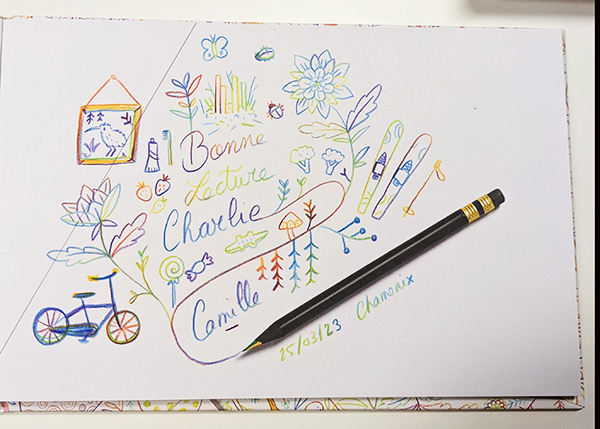 Bonne
Lecture
Charlie
Camille
25/03/23 Chamonix